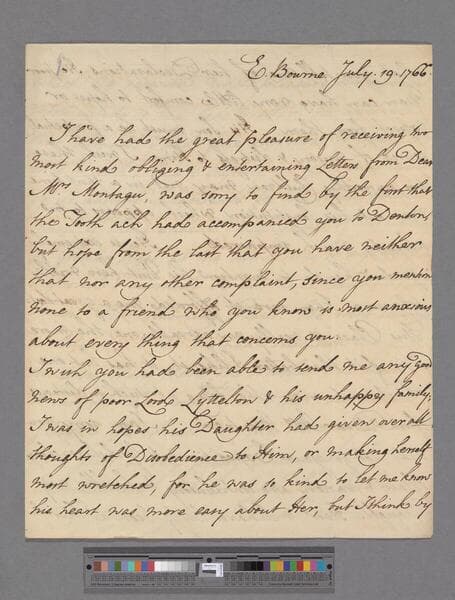 E. Bourne July. 19. 1766.
I have had the great pleasure of receiving two
most kind obliging & entertaining Letters from Dear
Mrs Montagu, was sorry to find by the first that
the Tooth ach had accompanied you to Denton,
but hope from the last that you have neither
that nor any other complaint, since you mention
none to a friend who you know is most anxious
about every thing that concerns you.
I wish you had been able to send me any good
news of poor Lord Lyttelton & his unhappy family,
I was in hopes his Daughter had given over all
thoughts of Disobedience to Him, or making herself
most wretched, for he was so kind to let me know
his heart was more easy about Her, but I think by